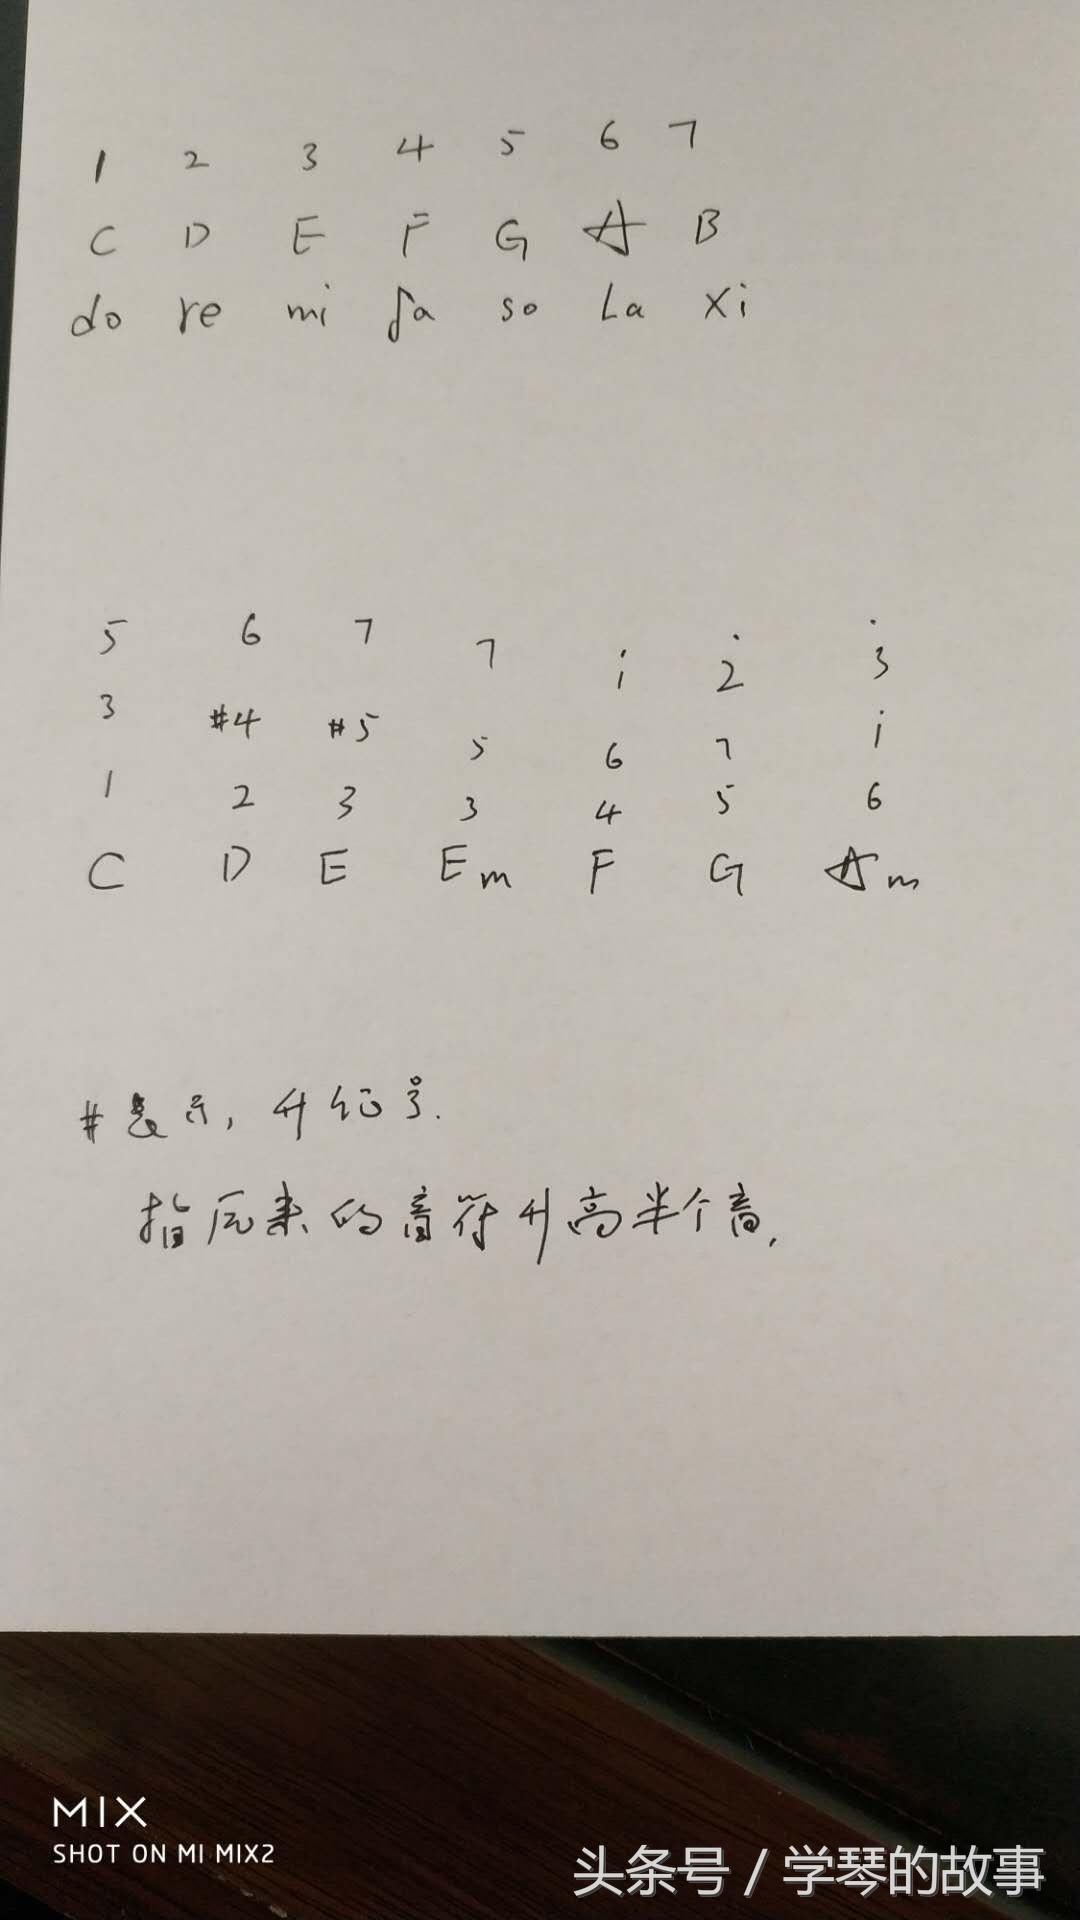 1 2 3 4 5 6 7
C D E F G A B
do re mi fa so La Xi
5 6 7 7 i 2̇ 3̇
3 #4 #5 5 6 7 i
1 2 3 3 4 5 6
C D E Em F G Am
#表示,升记号.
指后来的音符升高半个音,
MIX
SHOT ON MI MIX2
头条号 / 学琴的故事